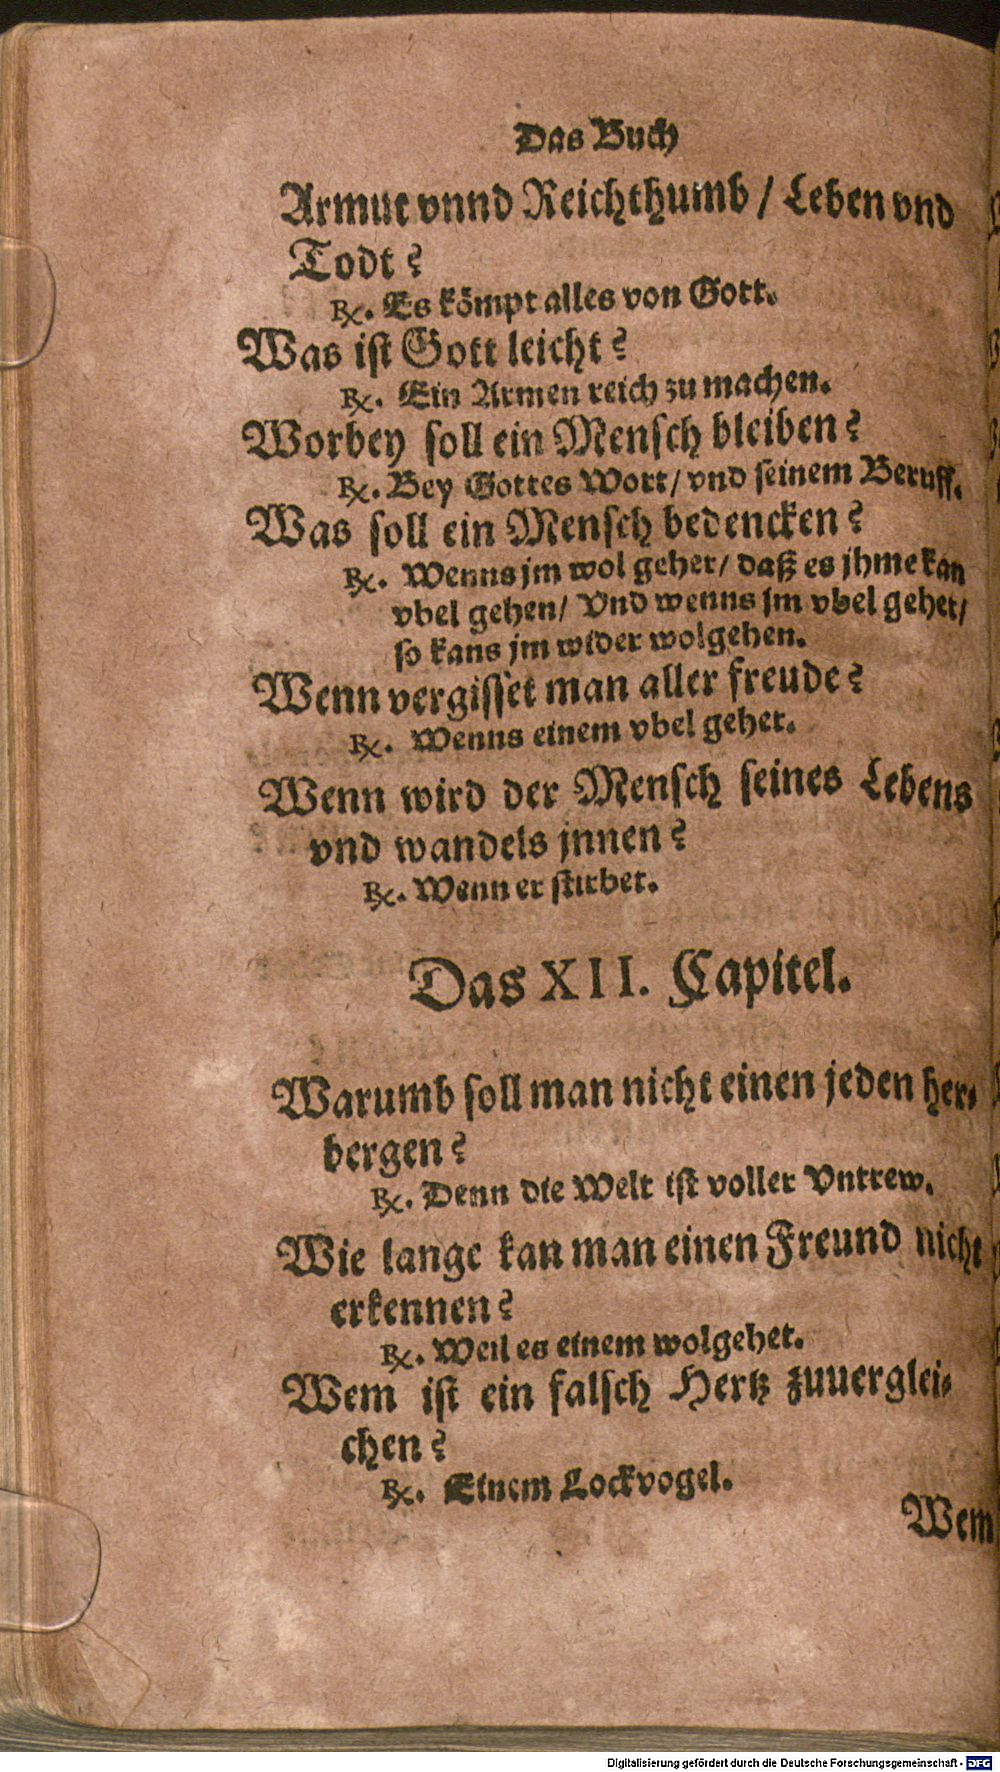 Das Buch
Armut vnnd Reichthumb / Leben vnd
Todt?
℞. Es kömpt alles von Gott.
Was ist Gott leicht?
℞. Ein Armen reich zu machen.
Worbey soll ein Mensch bleiben?
℞. Bey Gottes Wort / vnd seinem Beruff.
Was soll ein Mensch bedencken?
℞. Wenns jm wol gehet / daß es jhme kan
vbel gehen / Vnd wenns jm vbel gehet /
so kans jm wider wolgehen.
Wenn vergisset man aller freude?
℞. Wenns einem vbel gehet.
Wenn wird der Mensch seines Lebens
vnd wandels jnnen?
℞. Wenn er stirbet.
Das XII. Capitel.
Warumb soll man nicht einen jeden her⸗
bergen?
℞. Denn die Welt ist voller Vntrew.
Wie lange kan man einen Freund nicht
erkennen?
℞. Weil es einem wolgehet.
Wem ist ein falsch Hertz zuuerglei⸗
chen?
℞. Einem Lockvogel.
Wem
Digitalisierung gefördert durch die Deutsche Forschungsgemeinschaft - DFG